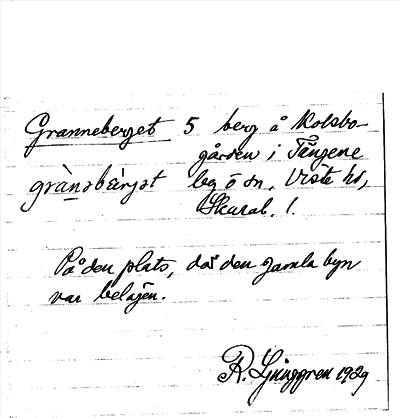 Granneberget 5 berg å Kolsbo-
gården i Tångene
gràn̠ǝbæ̀rjǝt by ö sn, Viste hd,
Skarab. l.
På den plats, där den gamla byn
var belägen.
R. Ljunggren 1929